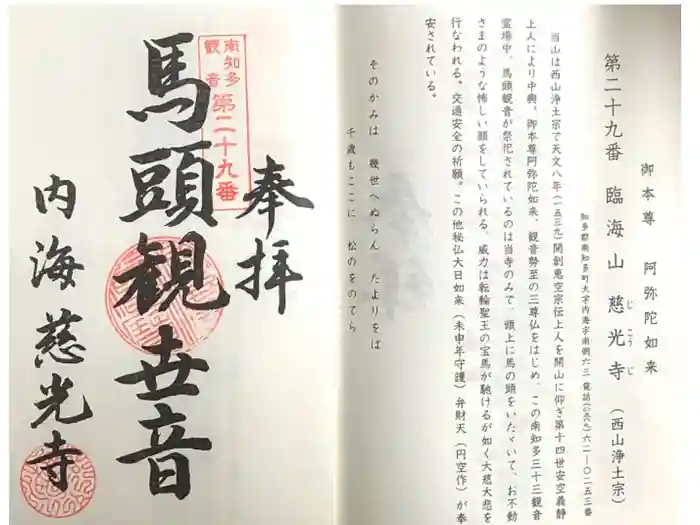 御本尊 阿弥陀如来
第二十九番 臨海山 慈光寺 (西山浄土宗)
じこうじ
知多郡南知多町大字内海字南側六三 電話(〇五六九)六二―〇二五三番
当山は西山浄土宗で天文八年(一五三九)開創恵空宗伝上人を開山に仰ぎ第十四世安空義静
上人により中興。御本尊阿弥陀如来、観音勢至の三尊仏をはじめ、この南知多三十三観音
霊場中、馬頭観音が祭祀されているのは当寺のみで、頭上に馬の頭をいたゞいて、お不動
さまのような怖しい顔をしていられる。威力は転輪聖王の宝馬が馳けるが如く大慈大悲を
行なわれる。交通安全の祈願。この他秘仏大日如来(未申年守護)弁財天(円空作)が奉
安されている。
そのかみは 幾世へぬらん たよりをば
千歳もここに 松のをのてら
奉拝
南知多観音
第二十九番
馬頭観世音
内海 慈光寺